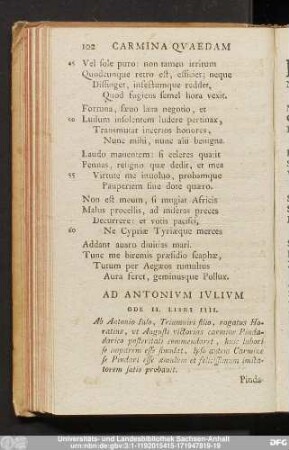 102 CARMINA QVAEDAM
45 Vel sole puro: non tamen irritum
Quodcumque retro est, efficiet; neque
Diffinget, infectumque reddet,
Quod fugiens semel hora vexit.
Fortuna, saeuo laeta negotio, et
50 Ludum insolentem ludere pertinax,
Transmutat incertos honores,
Nunc mihi, nunc alii benigna.
Laudo manentem: si celeres quatit
Pennas, resigno quae dedit, et mea
55 Virtute me inuoluo, probamque
Pauperiem sine dote quaero.
Non est meum, si mugiat Africis
Malus procellis, ad miseras preces
Decurrere; et votis pacisci,
60 Ne Cypriae Tyriaeque merces
Addant auaro diuitias mari.
Tunc me biremis praesidio scaphae,
Tutum per Aegaeos tumultus
Aura feret, geminusque Pollux.
AD ANTONIVM IVLIVM
ODE II. LIBRI IIII.
Ab Antonio Iulo, Triumuiri filio, rogatus Ho-
ratius, vt Augusti victorias carmine Pinda-
darico posteritati commendaret, huic labori
se imparem esse simulat. Ipso autem Carmine
se Pindari esse aemulum et felicissimum imita-
torem satis probauit.
Pinda-
Universitäts- und Landesbibliothek Sachsen-Anhalt
urn:nbn:de:gbv:3:1-1192015415-171947819-19